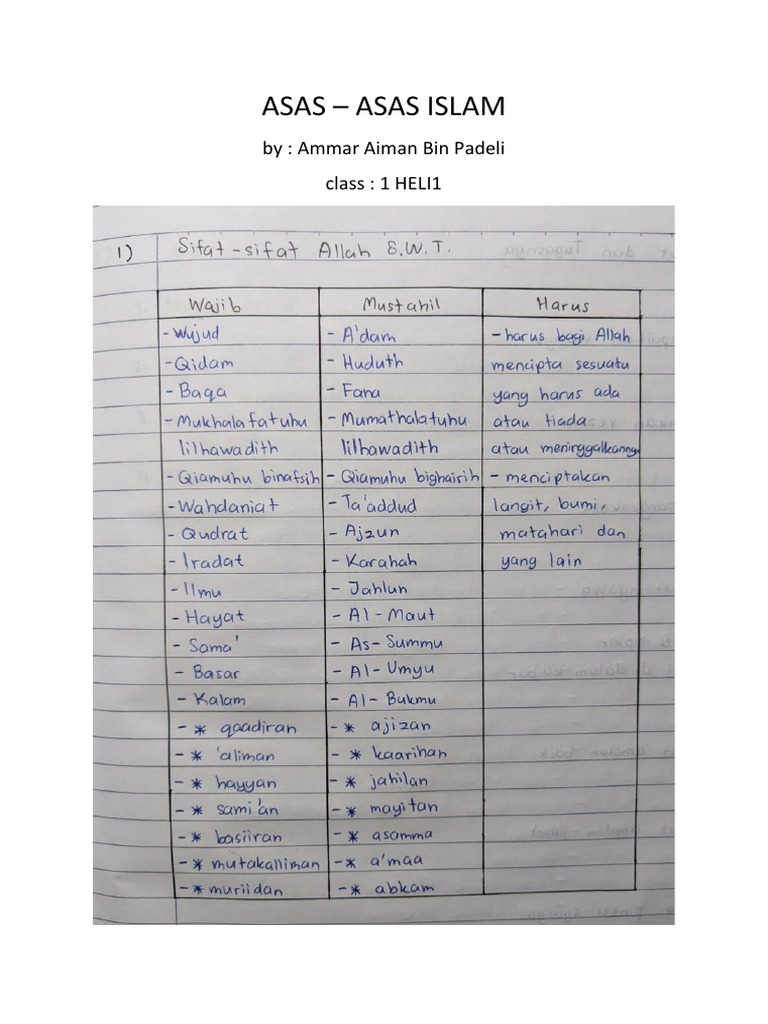 ASAS – ASAS ISLAM
by : Ammar Aiman Bin Padeli
class : 1 HELI1
1) Sifat-sifat Allah S.W.T.
Wajib Mustahil Harus
- Wujud - A'dam - harus bagi Allah
- Qidam - Huduth mencipta sesuatu
- Baqa - Fana yang harus ada
- Mukhalafatuhu - Mumathalatuhu atau tiada
lilhawadith lilhawadith atau meninggalkannya
- Qiamuhu binafsih - Qiamuhu bighairih - menciptakan
- Wahdaniat - Ta'addud langit, bumi,
- Qudrat - Ajzun matahari dan
- Iradat - Karahah yang lain
- Ilmu - Jahlun
- Hayat - Al-Maut
- Sama' - As-Summu
- Basar - Al-Umyu
- Kalam - Al-Bukmu
- * qaadiran - * ajizan
- * 'aliman - * kaarihan
- * hayyan - * jahilan
- * sami'an - * mayitan
- * basiiran - * asamma
- * mutakalliman - * a'maa
- * muriidan - * abkam